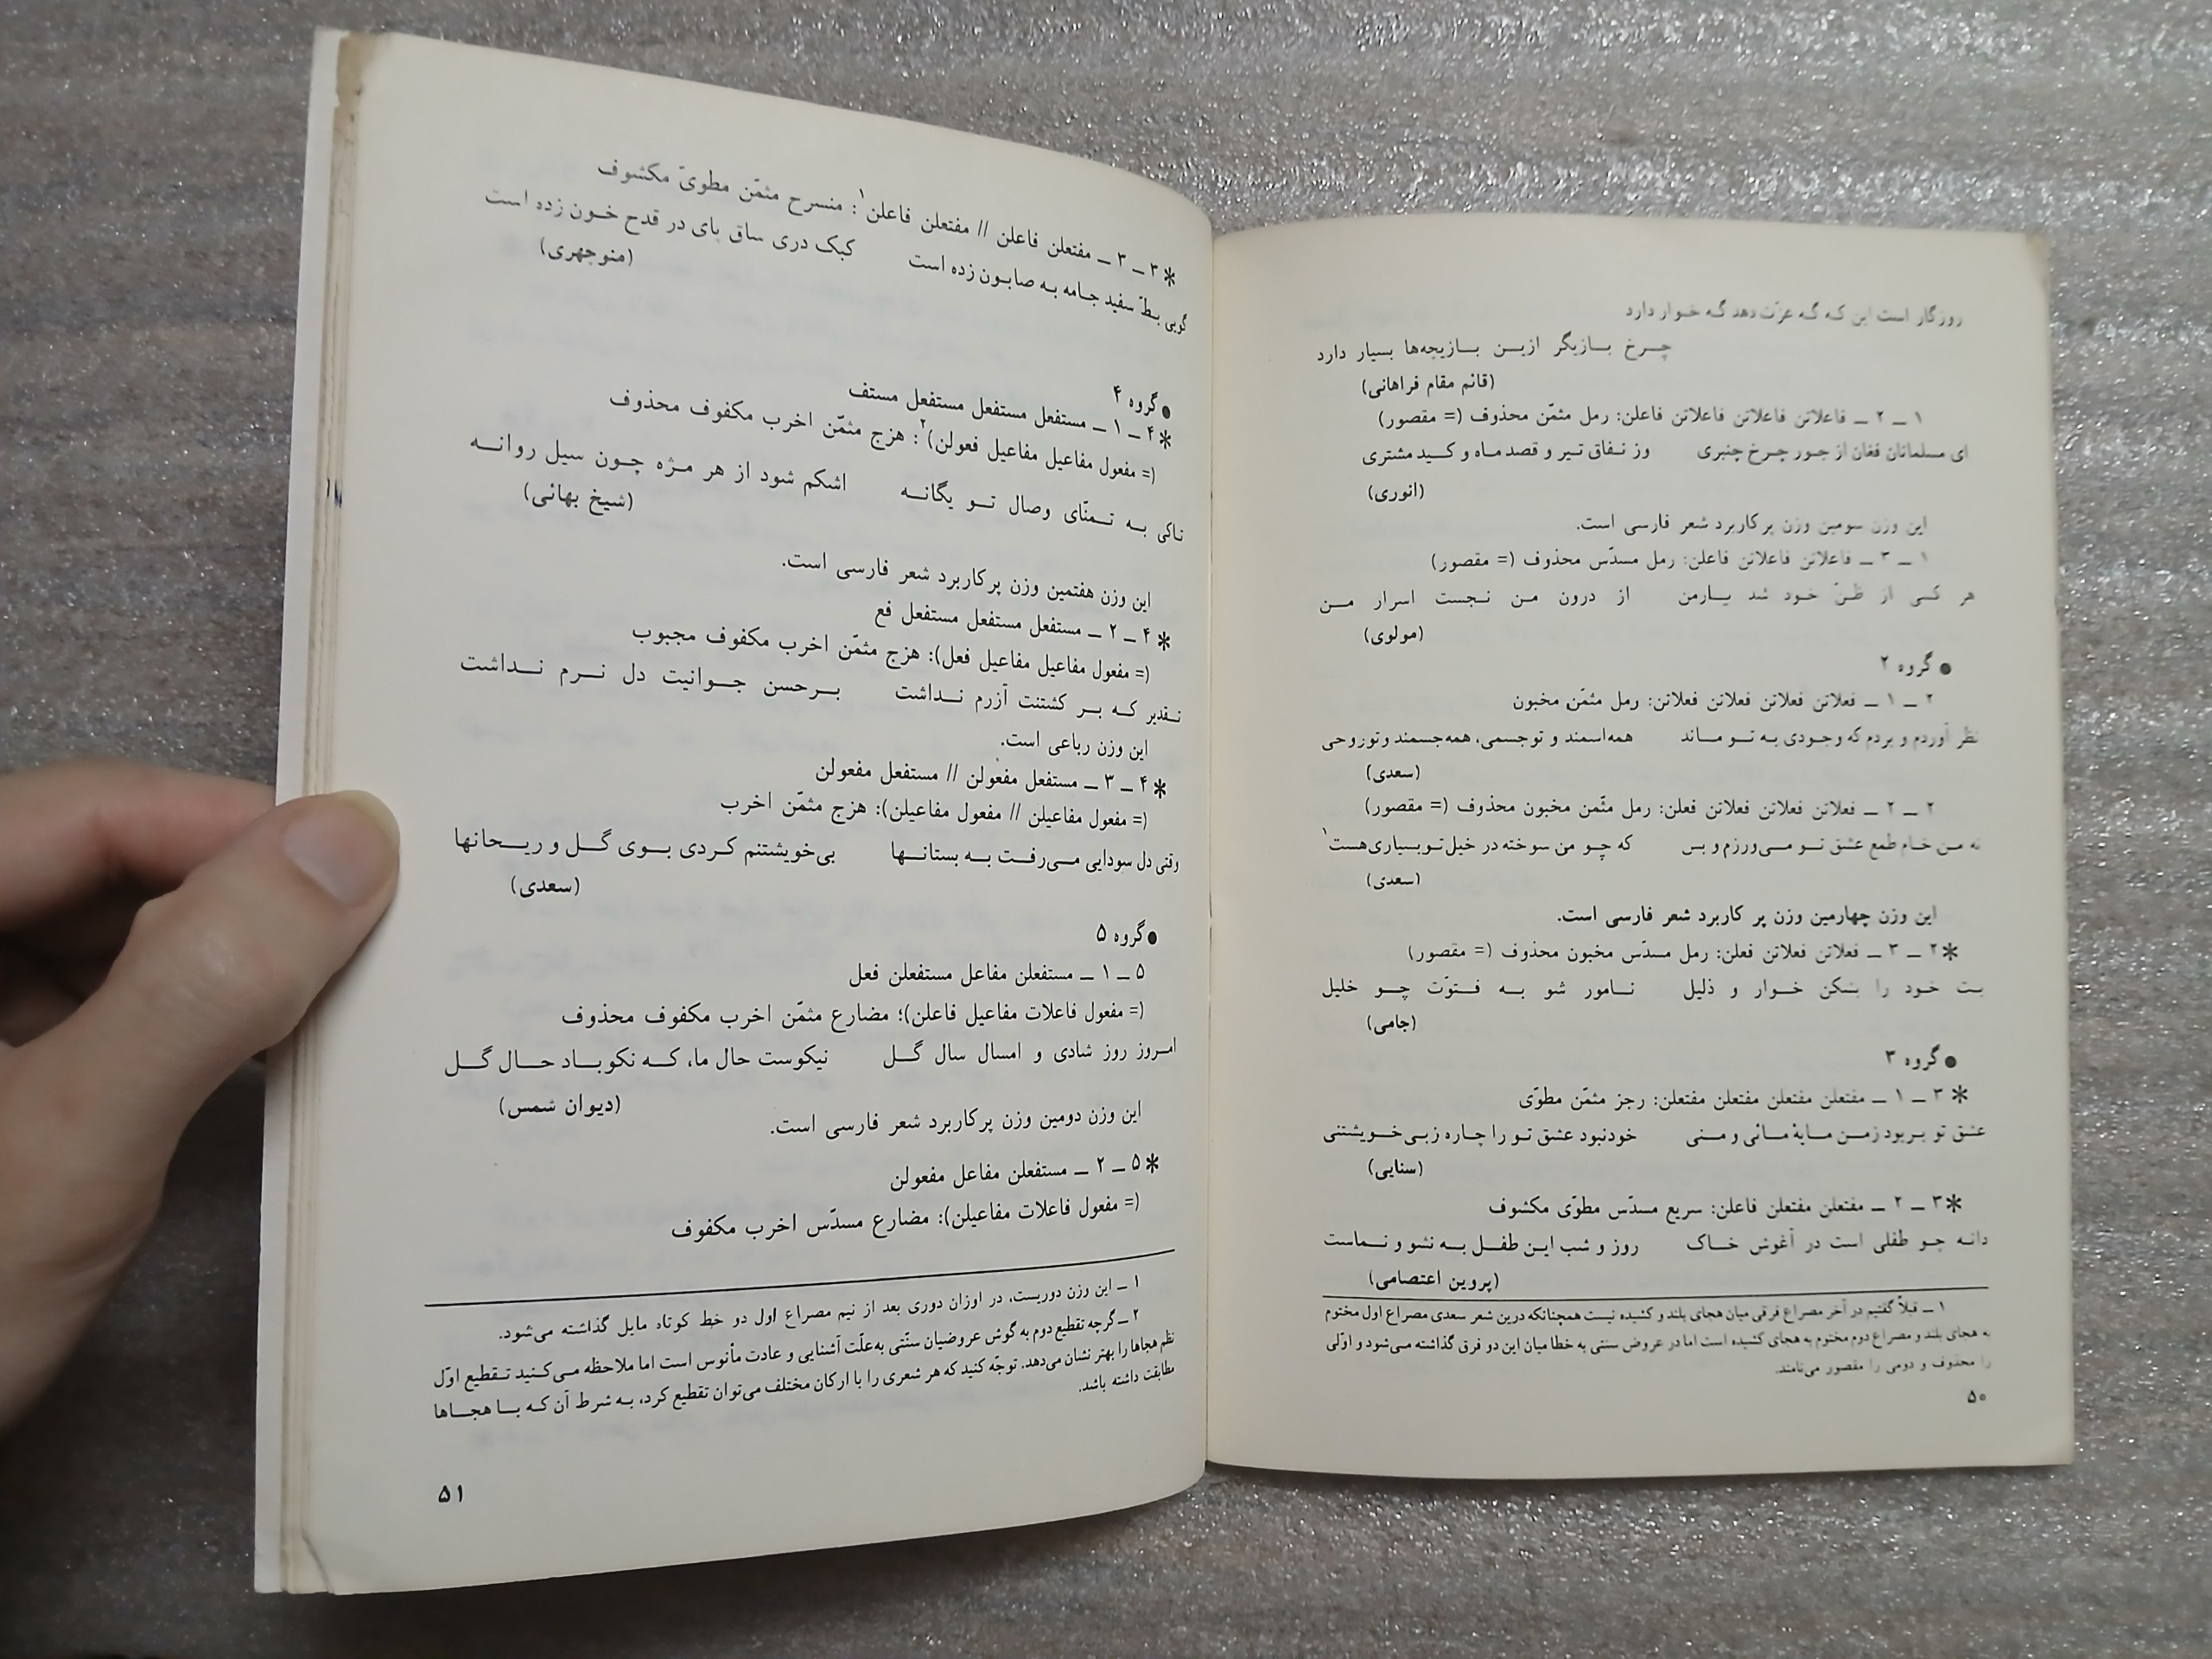 روزگار است این که گه عزّت دهد گه خوار دارد
چرخ بازیگر ازین بازیچه‌ها بسیار دارد
(قائم مقام فراهانی)
۱ ــ ۲ ــ فاعلاتن فاعلاتن فاعلاتن فاعلن: رمل مثمّن محذوف (= مقصور)
ای مسلمانان فغان از جور چرخ چنبری وز نفاق تیر و قصد ماه و کید مشتری
(انوری)
این وزن سومین وزن پرکاربرد شعر فارسی است.
۱ ــ ۳ ــ فاعلاتن فاعلاتن فاعلن: رمل مسدّس محذوف (= مقصور)
هر کسی از ظنّ خود شد یارمن از درون من نجست اسرار من
(مولوی)
● گروه ۲
۲ ــ ۱ ــ فعلاتن فعلاتن فعلاتن فعلاتن: رمل مثمّن مخبون
نظر آوردم و بردم که وجودی به تو ماند همه‌اسمند و توجسمی، همه‌جسمند وتوروحی
(سعدی)
۲ ــ ۲ ــ فعلاتن فعلاتن فعلاتن فعلن: رمل مثّمن مخبون محذوف (= مقصور)
نه من خام طمع عشق تو می‌ورزم و بس که چو من سوخته در خیل‌تو‌بسیاری‌هست۱
(سعدی)
این وزن چهارمین وزن پر کاربرد شعر فارسی است.
*۲ ــ ۳ ــ فعلاتن فعلاتن فعلن: رمل مسدّس مخبون محذوف (= مقصور)
بت خود را بشکن خوار و ذلیل نامور شو به فتوّت چو خلیل
(جامی)
● گروه ۳
* ۳ ــ ۱ ــ مفتعلن مفتعلن مفتعلن مفتعلن: رجز مثمّن مطوّی
عشق تو بربود زمن مایهٔ مائی و منی خودنبود عشق تو را چاره زبی‌خویشتنی
(سنایی)
*۳ ــ ۲ ــ مفتعلن مفتعلن فاعلن: سریع مسدّس مطوّی مکشوف
دانه چو طفلی است در آغوش خاک روز و شب این طفل به نشو و نماست
(پروین اعتصامی)
۱ ــ قبلاً گفتیم در آخر مصراع فرقی میان هجای بلند و کشیده نیست همچنانکه درین شعر سعدی مصراع اول مختوم
به هجای بلند و مصراع دوم مختوم به هجای کشیده است اما در عروض سنتی به خطا میان این دو فرق گذاشته می‌شود و اوّلی
را محذوف و دومی را مقصور می‌نامند.
۵۰
* ۳ ــ ۳ ــ مفتعلن فاعلن // مفتعلن فاعلن۱: منسرح مثمّن مطویّ مکشوف
گویی بطّ سفید جامه به صابون زده است کبک دری ساق پای در قدح خون زده است
(منوچهری)
● گروه ۴
* ۴ ــ ۱ ــ مستفعل مستفعل مستفعل مستف
(= مفعول مفاعیل مفاعیل فعولن)۲: هزج مثمّن اخرب مکفوف محذوف
تاکی به تمنّای وصال تو یگانه اشکم شود از هر مژه چون سیل روانه
(شیخ بهائی)
این وزن هفتمین وزن پرکاربرد شعر فارسی است.
* ۴ ــ ۲ ــ مستفعل مستفعل مستفعل فع
(= مفعول مفاعیل مفاعیل فعل): هزج مثمّن اخرب مکفوف مجبوب
تقدیر که بر کشتنت آزرم نداشت برحسن جوانیت دل نرم نداشت
این وزن رباعی است.
* ۴ ــ ۳ ــ مستفعل مفعولن // مستفعل مفعولن
(= مفعول مفاعیلن // مفعول مفاعیلن): هزج مثمّن اخرب
وقتی دل سودایی می‌رفت به بستانها بی‌خویشتنم کردی بوی گل و ریحانها
(سعدی)
● گروه ۵
۵ ــ ۱ ــ مستفعلن مفاعل مستفعلن فعل
(= مفعول فاعلات مفاعیل فاعلن)؛ مضارع مثمّن اخرب مکفوف محذوف
امروز روز شادی و امسال سال گل نیکوست حال ما، که نکوباد حال گل
(دیوان شمس)
این وزن دومین وزن پرکاربرد شعر فارسی است.
* ۵ ــ ۲ ــ مستفعلن مفاعل مفعولن
(= مفعول فاعلات مفاعیلن): مضارع مسدّس اخرب مکفوف
۱ ــ این وزن دوریست، در اوزان دوری بعد از نیم مصراع اول دو خط کوتاه مایل گذاشته می‌شود.
۲ ــ گرچه تقطیع دوم به گوش عروضیان سنّتی به‌علّت آشنایی و عادت مأنوس است اما ملاحظه می‌کنید تقطیع اوّل
نظم هجاها را بهتر نشان می‌دهد. توجّه کنید که هر شعری را با ارکان مختلف می‌توان تقطیع کرد، به شرط آن که با هجاها
مطابقت داشته باشد.
۵۱